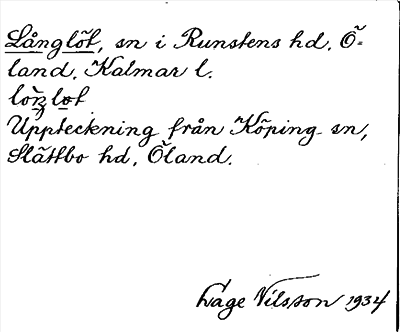 Långlöt, sn i Runstens hd, Ö-
land, Kalmar l.
Uppteckning från Köping sn,
Slättbo hd, Öland.
Åage Nilsson 1934